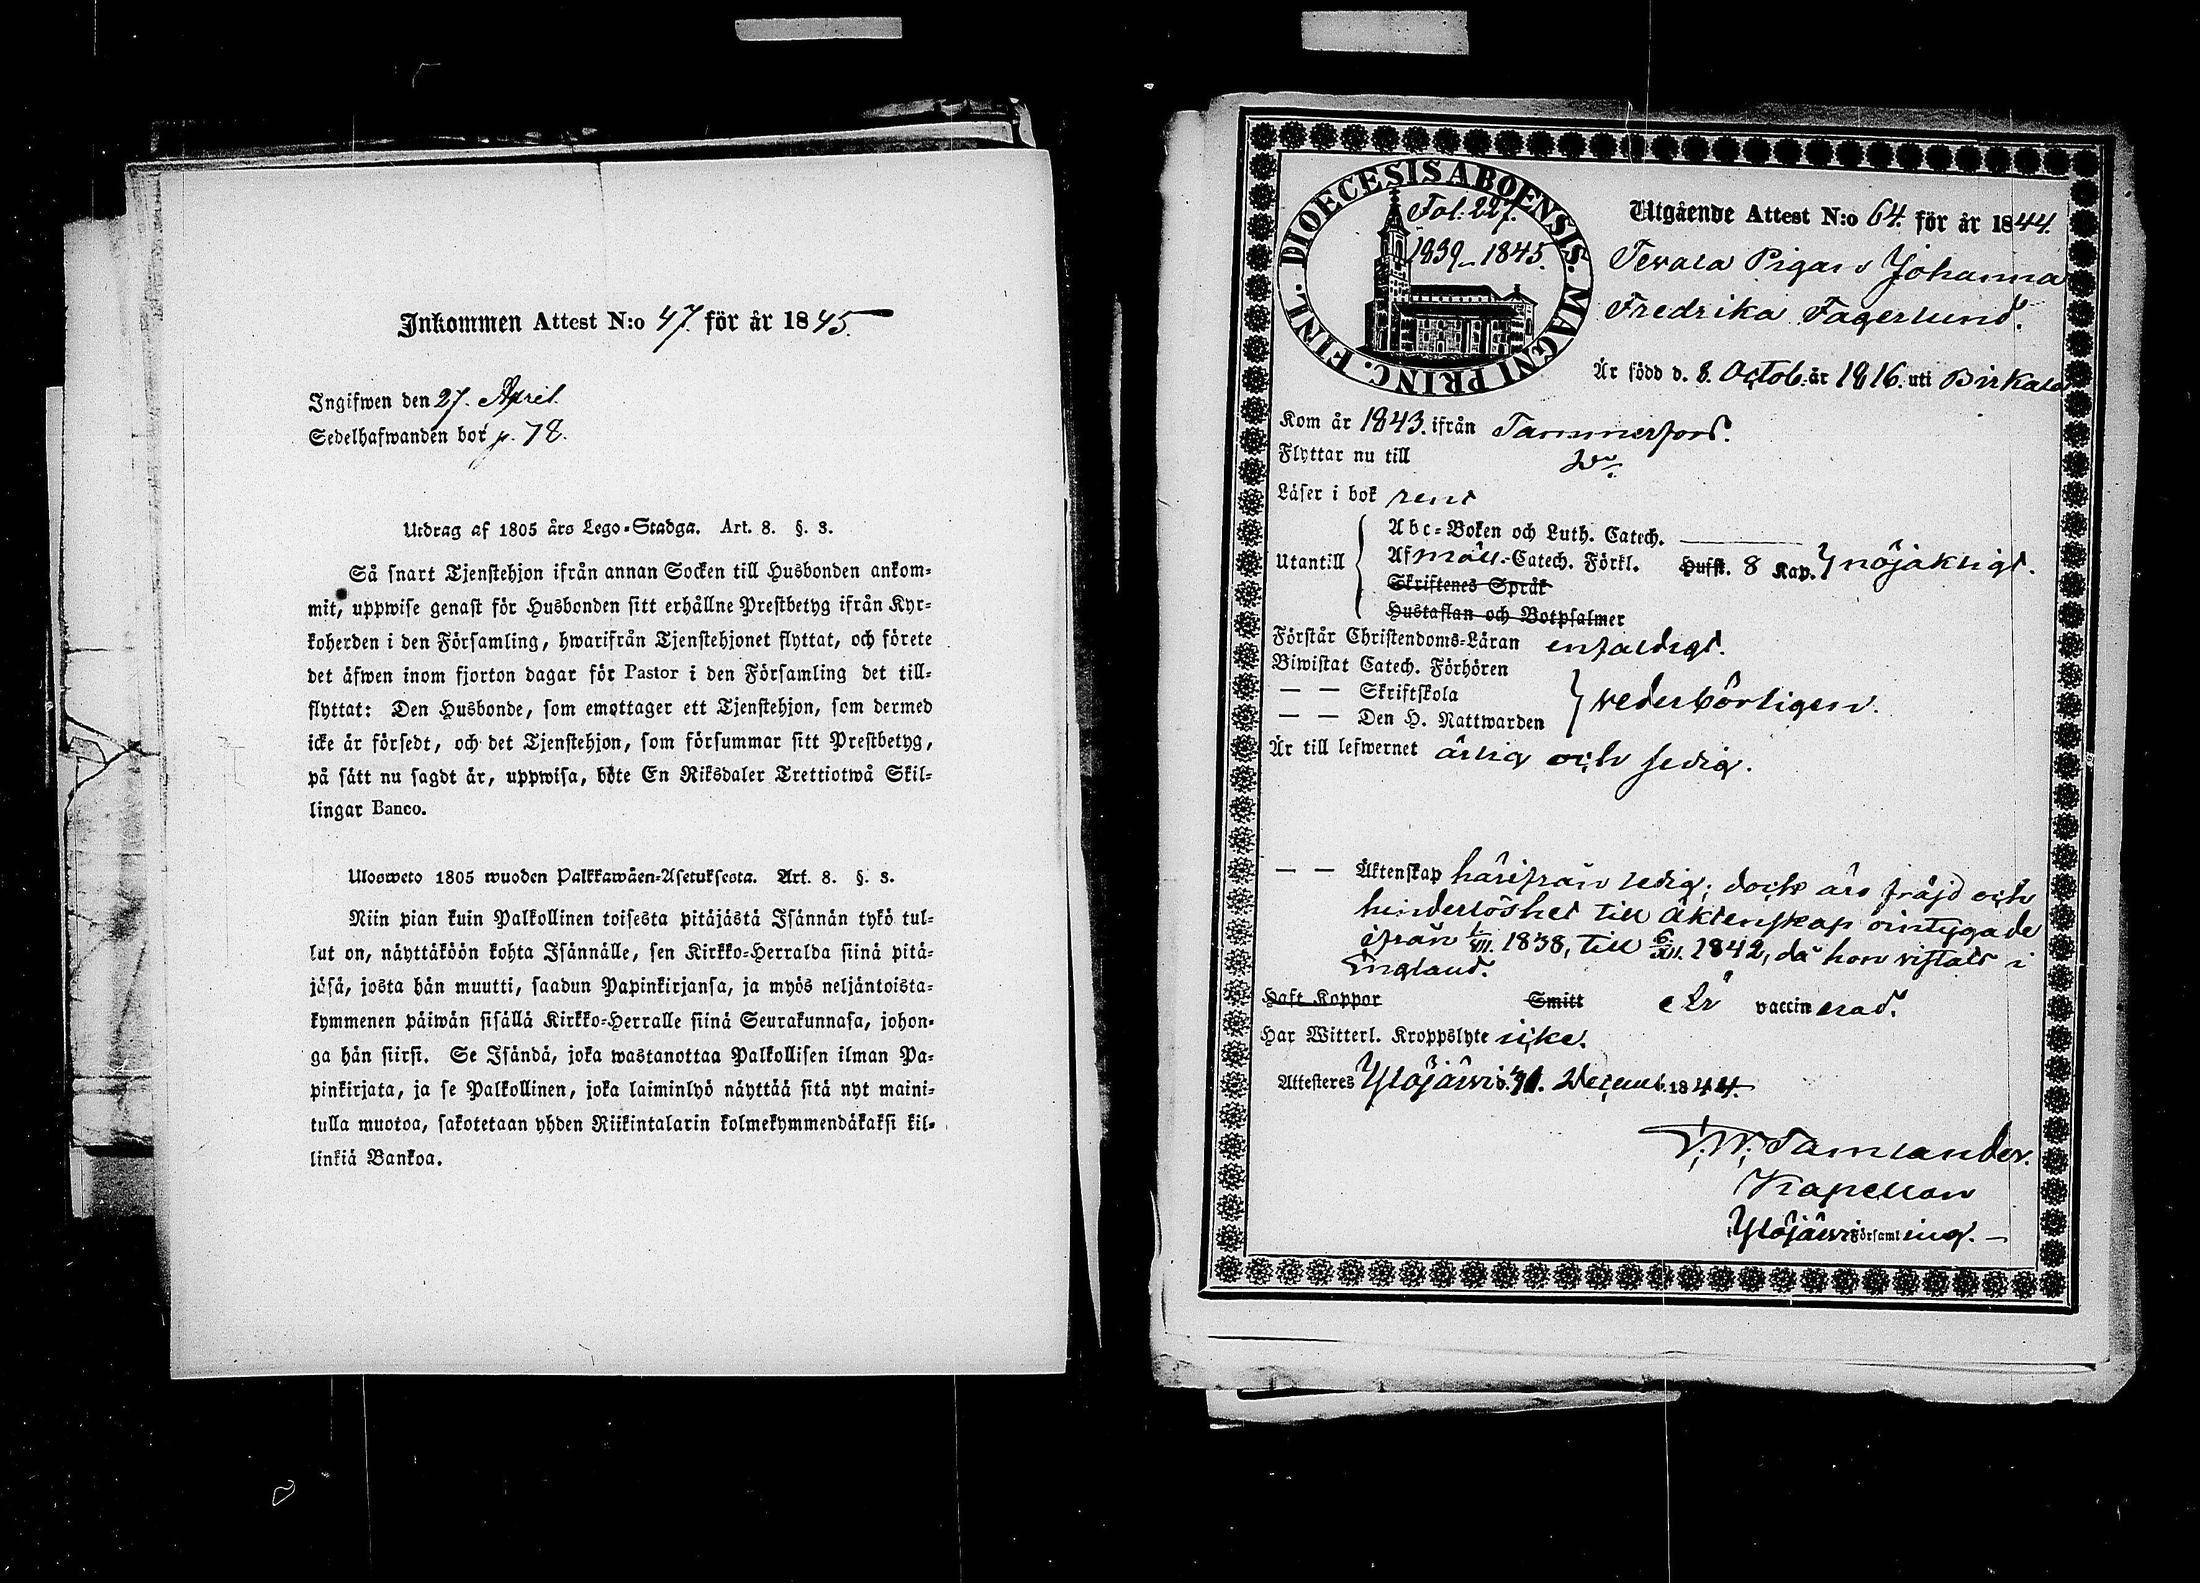 Inkommen Attest N:o 47. för år 1845.
Ingifwen den 27. April.
Sedelhafwanden bor p. 78.
Utdrag af 1805 års Lego-Stadga. Art. 8. §. 3.
Så snart Tjenstehjon ifrån annan Socken till Husbonden ankom-
mit, uppwise genast för Husbonden sitt erhållne Prestbetyg ifrån Kyr-
koherden i den Församling, hwarifrån Tjenstehjonet flyttat, och förete
det äfwen inom fjorton dagar för Pastor i den Församling det till-
flyttat: Den Husbonde, som emottager ett Tjenstehjon, som dermed
icke är försedt, och det Tjenstehjon, som försummar sitt Prestbetyg,
på sätt nu sagdt är, uppwisa, böte En Riksdaler Trettiotwå Skil-
lingar Banco.
Ulosweto 1805 wuoden Palkkawäen-Asetuksesta. Art. 8. §. 3.
Niin pian kuin Palkollinen toisesta pitäjästä Isännän tykö tul-
lut on, näyttäköön kohta Isännälle, sen Kirkko-Herralda siinä pitä-
jäsä, josta hän muutti, saadun Papinkirjansa, ja myös neljäntoista-
kymmenen päiwän sisällä Kirkko-Herralle siinä Seurakunnasa, johon-
ga hän siirsi. Se Isändä, joka wastanottaa Palkollisen ilman Pa-
pinkirjata, ja se Palkollinen, joka laiminlyö näyttää sitä nyt maini-
tulla muotoa, sakotetaan yhden Riikintalarin kolmekymmendäkaksi kil-
linkiä Bankoa.
DIOECESIS ABOENSIS. MAGNI PRINC. FINL.
Fol: 227.
1839–1845.
Utgående Attest N:o 64. för år 1844.
Pigan Johanna
Fredrika Fagerlund.
Är född d. 8. Octob: år 1816. uti Birkala
Kom år 1843. ifrån Tammerfors.
Flyttar nu till Do
Läser i bok rent
Utantill
Abc-Boken och Luth. Catech.
Af mäll: Catech. Förkl. Husst. 8 Kap. } nöjaktigt.
Skriftenes Språk
Hustaflan och Botpsalmer
Förstår Christendoms-Läran enfaldigt.
Biwistat Catech. Förhören
— — Skriftskola
— — Den H. Nattwarden } vederbörligen.
Är till lefwernet ärlig och sedig.
— — Äktenskap härifrån ledig; dock äro fräjd och
hinderlöshet till äktenskap ointygade
ifrån 1/VII. 1838, till 6/XI. 1842, då hon vistats i
England.
Haft Koppor Smitt Är vaccinerad.
Har Witterl. Kroppslyte icke.
Attesteres Ylöjärvi d. 31. Decemb. 1844.
Kapellan
Ylöjärvi Församling. —